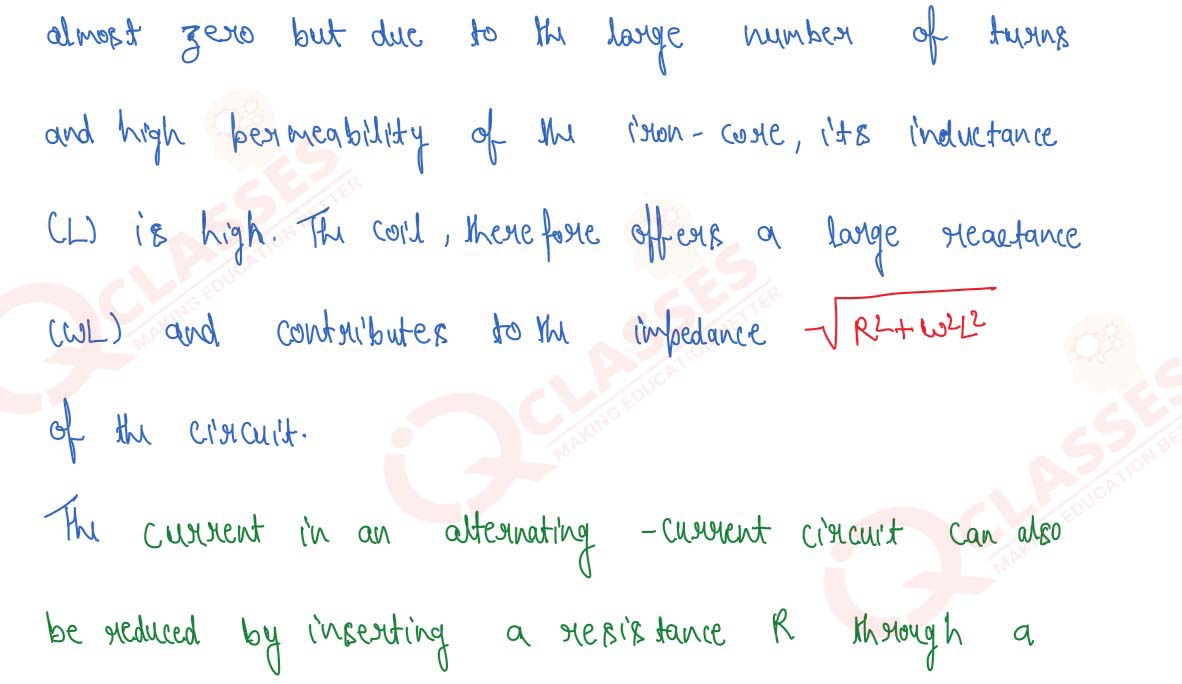 almost zero but due to the large number of turns
and high permeability of the iron-core, its inductance
(L) is high. The coil, therefore offers a large reactance
(ωL) and contributes to the impedance √R²+ω²L²
of the circuit.
The current in an alternating -current circuit can also
be reduced by inserting a resistance R through a
iQ CLASSES
MAKING EDUCATION BETTER
iQ CLASSES
MAKING EDUCATION BETTER
iQ CLASSES
MAKING EDUCATION BE